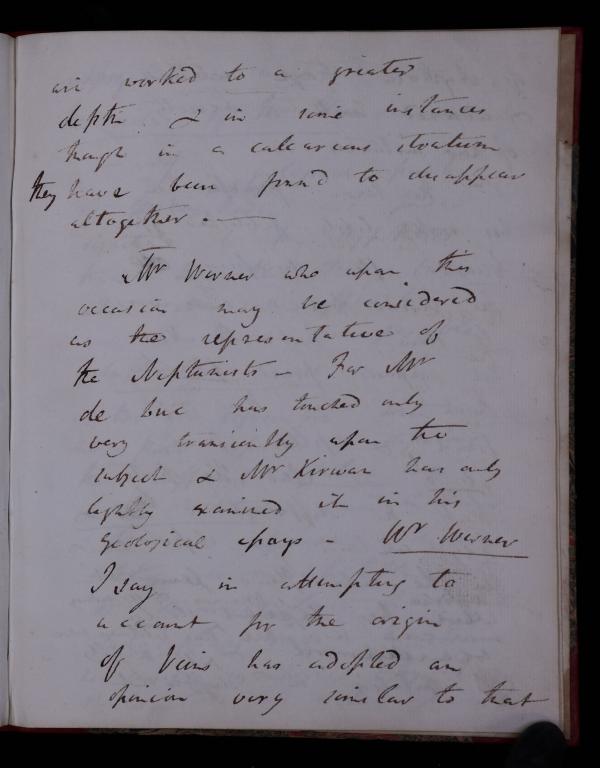 are worked to a greater
depth & in some instances
though in a calcareous stratum
they have been found to disappear
altogether. —
Mr Werner who upon this
occasion may be considered
as the representative of
the Neptunists – For Mr
de Luc has touched only
very transiently upon the
subject & Mr Kirwan has only
lightly examined it in his
geological essays – Mr Werner
I say in attempting to
account for the origin
of Veins has adopted an
opinion very similar to that